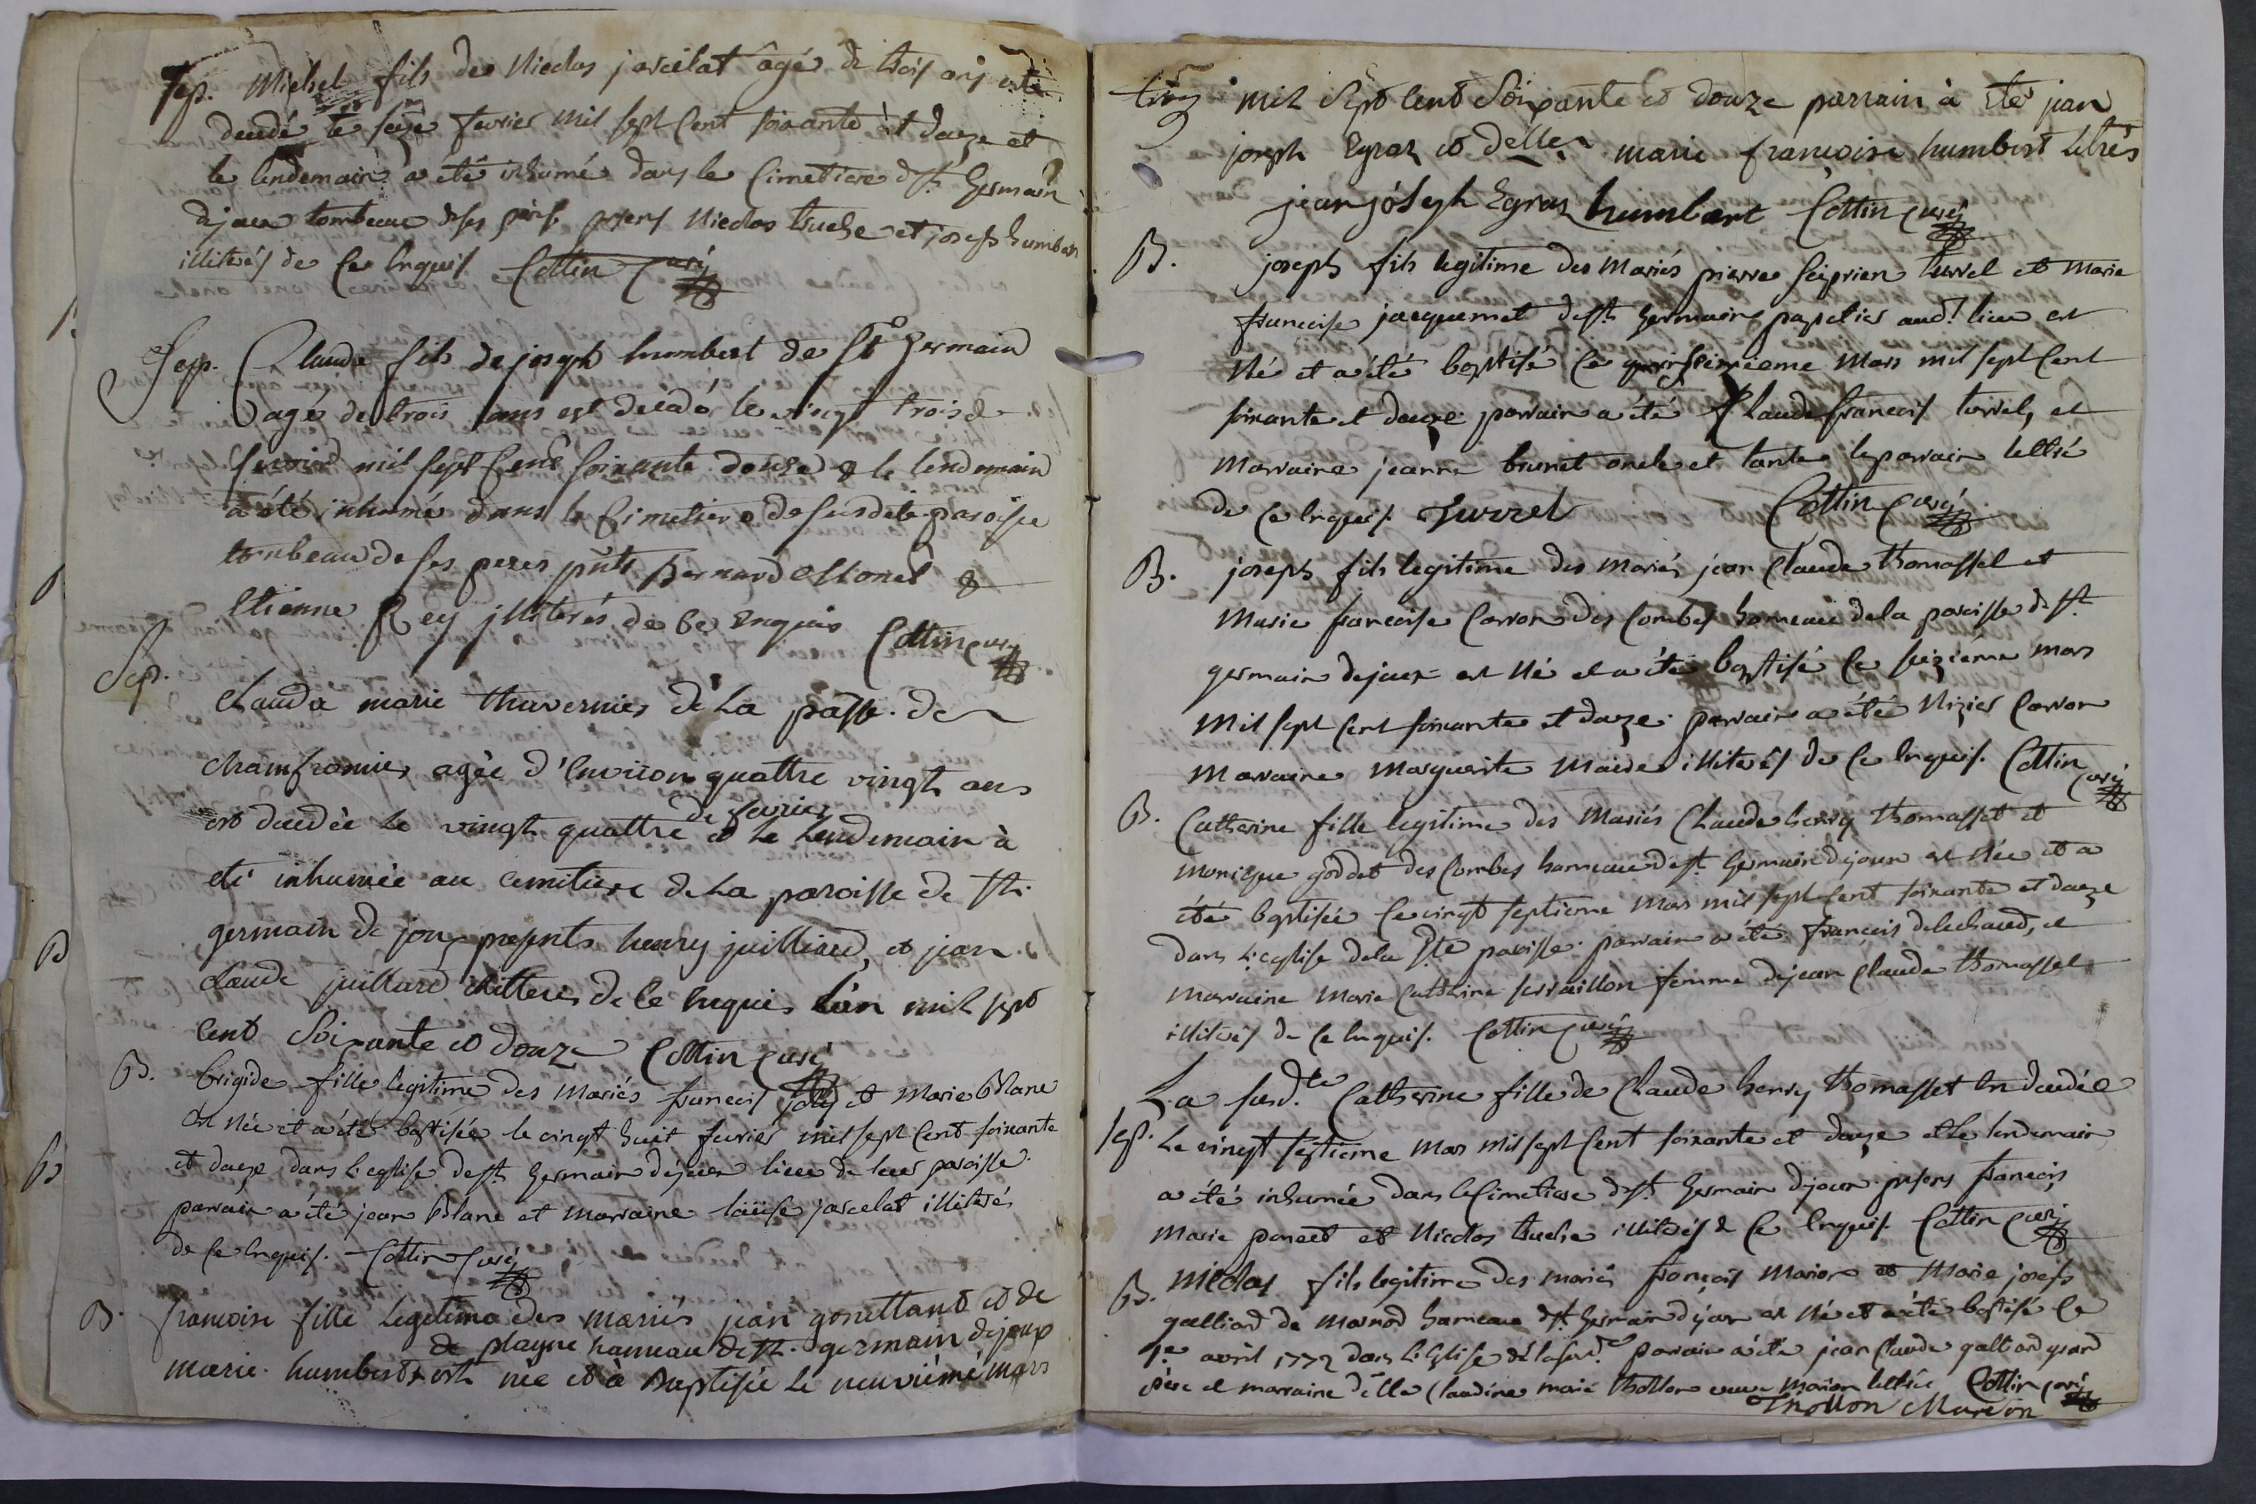 Sep. Michel fils de Nicolas joscelat âgé de trois ans est
decedé le seize fevrier mil sept cent soixante et douze et
le lendemain a été inhumé dans le Cimetiere de st. Germain
dejoux tombeau de ses peres presens Nicolas tuche et joseph humbert
illiterés de ce enquis Cottin curé
Sep. Claude fils de joseph humbert de St Germain
agé de trois ans est decedé le vingt trois de
fevrier mil sept Cent Soixante douze & le lendemain
a été inhumé dans le Cimetiere de susdite paroisse
tombeau de ses peres pnts Bernard Monet &
Etienne Rey illiterés de ce enquis Cottin curé
Sep. Clauda marie thuvernier de La passe. de
chamfromier, agée d'Environ quattre vingt ans
est decedée Le vingt quattre de fevrier et Le Lendemain à
eté inhumée au cemitiere de La paroisse de St.
germain de joux presents henry juilliard, et jean
claude juillard illitterés de Ce Enquis L'an mil sept
Cent Soixante et douze Cottin curé
B. Brigide fille legitime des Mariés francois joly et Marie Blanc
est née et a été baptisée le vingt huit fevrier mil sept Cent soixante
et douze dans L'eglise de st. Germain dejoux lieu de leur paroisse.
parrain a été jean Blanc et marraine loüise joscelat illiterés
de ce enquis. Cottin curé
B. francoise fille Legitime des mariés jean gonettand et de
de playne hameau de St. germain dejoux
marie humbert est née et à Baptisée Le neuviéme mars
mil Sept Cent Soixante et douze parrain à été jean
joseph Egraz et delle marie francoise humbert Létrés
jean jóseph Egraz humbert Cottin curé
B. joseph fils legitime des Mariés pierre Ciprien turrel et Marie
francoise jacquemet de st. Germain papetier aud. lieu est
né et a été baptisé ce mars mil sept Cent
soixante et douze parrain a été Claude francois turrel, et
Marraine jeanne brunet oncle et tante le parrain lettré
de ce enquis. Turrel Cottin curé
B. joseph fils legitime des Mariés jean Claude thomasset et
Marie francoise Carron des Combes hameau de la paroisse de st.
germain dejoux est Né et a été baptisé ce seizieme mars
mil sept Cent soixante et douze parrain a été Nizier Carron
Marraine Marguerite illiterés de ce enquis. Cottin curé
B. Catherine fille legitime des Mariés Claude henry thomasset et
monique goddet des Combes hameau de st. Germain dejoux est Née et a
été baptisée ce vingt septieme Mars mil sept Cent soixante et douze
dans L'eglise de la dte paroisse. parrain a été françois delechaud, et
marraine Marie Catherine serraillon femme de jean Claude thomasset
illiterés de ce enquis. Cottin curé
Sep. La susd.te Catherine fille de Claude henry thomasset decedée
Le vingt septieme Mars mil sept Cent soixante et douze et le lendemain
a été inhumée dans le Cimetiere de st. Germain dejoux presens francois
Marie poncet et Nicolas tuche illiterés de ce enquis. Cottin curé
B. Nicolas fils legitime des mariés françois Marion et Marie joseph
galliard de Marnod hameau de st. Germain dejoux est Né et a été baptisé ce
1er avril 1772 dans L'Eglise de la susd.te parrain a été jean Claude galliard grand
pere et marraine delle Claudine marie thollon veuve Marion lettrée Cottin curé
Thollon Marion